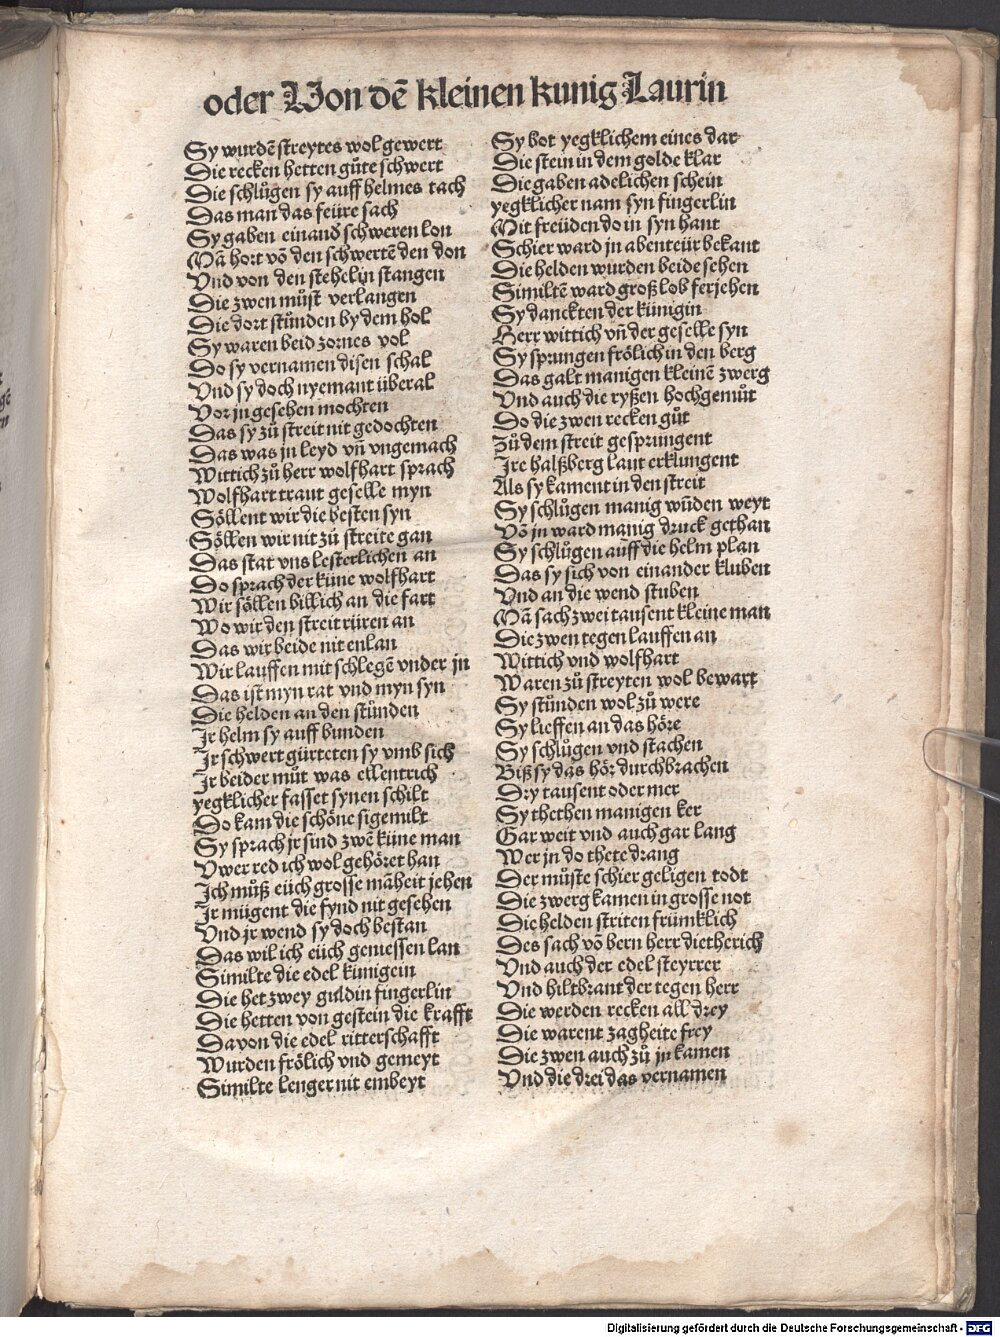 oder Von dē kleinen kunig Laurin
Sy wurdē streytes wol gewert
Die recken hetten gůte schwert
Die schlůgen sy auff helmes tach
Das man das feüre sach
Sy gaben einand schweren lon
Mā hort vō den schwertē den don
Vnd von den stehelin stangen
Die zwen můst verlangen
Die dort stůnden by dem hol
Sy waren beid zornes vol
Do sy vernamen disen schal
Vnd sy doch nyemant überal
Vor jn gesehen mochten
Das sy zů streit nit gedochten
Das was jn leyd vn̄ vngemach
Wittich zů herr wolfhart sprach
Wolfhart traut geselle myn
Söllent wir die besten syn
Söllen wir nit zů streite gan
Das stat vns lesterlichen an
Do sprach der küne wolfhart
Wir söllen billich an die fart
Wo wir den streit rüren an
Das wir beide nit enlan
Wir lauffen mit schlegē vnder jn
Das ist myn rat vnd myn syn
Die helden an den stůnden
Jr helm sy auff bunden
Jr schwert gürteten sy vmb sich
Jr beider můt was ellentrich
yegklicher fasset synen schilt
Do kam die schöne sigemilt
Sy sprach jr sind zwē küne man
Vwer red ich wol gehöret han
Ich můß eüch grosse māheit jehen
Jr mügent die fynd nit gesehen
Vnd jr wend sy doch bestan
Das wil ich eüch geniessen lan
Similte die edel künigein
Die het zwey guldin fingerlin
Die hetten von gestein die krafft
Davon die edel ritterschafft
Wurden frölich vnd gemeyt
Similte lenger nit embeyt
Sy bot yegklichem eines dar
Die stein in dem golde klar
Die gaben adelichen schein
yegklicher nam syn fingerlin
Mit freüden do in syn hant
Schier ward jn abenteür bekant
Die helden wurden beide sehen
Similtē ward groß lob ferjehen
Sy danckten der künigin
Herr wittich vn̄ der geselle syn
Sy sprungen frölich in den berg
Das galt manigen kleinē zwerg
Vnd auch die ryßen hochgemůt
Do die zwen recken gůt
Zů dem streit gesprungent
Jre halßberg laut erklungent
Als sy kament in den streit
Sy schlůgen manig wūden weyt
Vō jn ward manig druck gethan
Sy schlůgen auff die helm plan
Das sy sich von einander kluben
Vnd an die wend stuben
Mā sach zwei tausent kleine man
Die zwen tegen lauffen an
Wittich vnd wolfhart
Waren zů streyten wol bewart
Sy stůnden wol zů were
Sy lieffen an das höre
Sy schlůgen vnd stachen
Biß sy das hör durchbrachen
Dry tausent oder mer
Sy thethen manigen ker
Gar weit vnd auch gar lang
Wer jn do thete drang
Der můste schier geligen todt
Die zwerg kamen in grosse not
Die helden striten frümklich
Des sach vō bern herr dietherich
Vnd auch der edel steyrrer
Vnd hiltbrant der tegen herr
Die werden recken all drey
Die warent zagheite frey
Die zwen auch zů jn kamen
Vnd die drei das vernamen
Digitalisierung gefördert durch die Deutsche Forschungsgemeinschaft - DFG